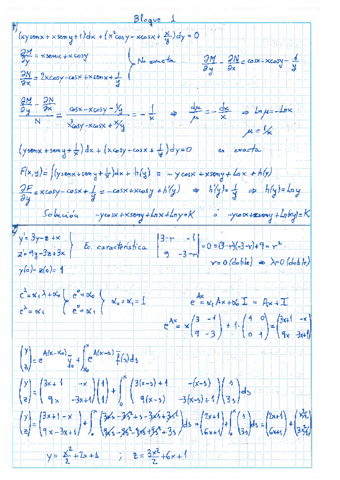 Bloque 1
1) (xysenx+xseny+1)dx+(x²cosy-xcosx+x/y)dy=0
∂M/∂y = xsenx+xcosy
∂N/∂x = 2xcosy-cosx+xsenx+1/y
No exacta
∂M/∂y - ∂N/∂x = cosx-xcosy-1/y
(∂M/∂y - ∂N/∂x)/N = (cosx-xcosy-1/y)/(x²cosy-xcosx+x/y) = -1/x ⇒ dμ/μ = -dx/x ⇒ Lnμ=-Lnx
μ=1/x
(ysenx+seny+1/x)dx+(xcosy-cosx+1/y)dy=0 es exacta
F(x,y)=∫(ysenx+seny+1/x)dx+h(y) = -ycosx+xseny+Lnx+h(y)
∂F/∂y = xcosy-cosx+1/y = -cosx+xcosy+h'(y) ⇒ h'(y)=1/y ⇒ h(y)=Lny
Solución -ycosx+xseny+Lnx+Lny=K ó -ycosx+xseny+Lnxy=K
y'=3y-z+x
z'=9y-3z+3x
y(0)=z(0)=1
E. característica |3-r -1; 9 -3-r|=0=(3-r)(-3-r)+9=r²
r=0(doble) ⇒ λ=0(doble)
e^λ=α₁λ+α₀
e^λ=α₁
e⁰=α₀
e⁰=α₁
α₀=α₁=1
e^Ax=α₁Ax+α₀I = Ax+I
e^Ax = x(3 -1; 9 -3)+1·(1 0; 0 1)=(3x+1 -x; 9x -3x+1)
(y; z)=e^A(x-x₀) y₀+∫e^A(x-s) f(s)ds
(y; z)=(3x+1 -x; 9x -3x+1)(1; 1)+∫₀ˣ(3(x-s)+1 -(x-s); 9(x-s) -3(x-s)+1)(s; 3s)ds
(y; z)=(3x+1-x; 9x-3x+1)+∫₀ˣ(3xs-3s²+s-3xs+3s²; 9xs-9s²-9xs+9s²+3s)ds=(2x+1; 6x+1)+∫₀ˣ(s; 3s)ds=(2x+1; 6x+1)+(x²/2; 3x²/2)
y=x²/2+2x+1 ; z=3x²/2+6x+1